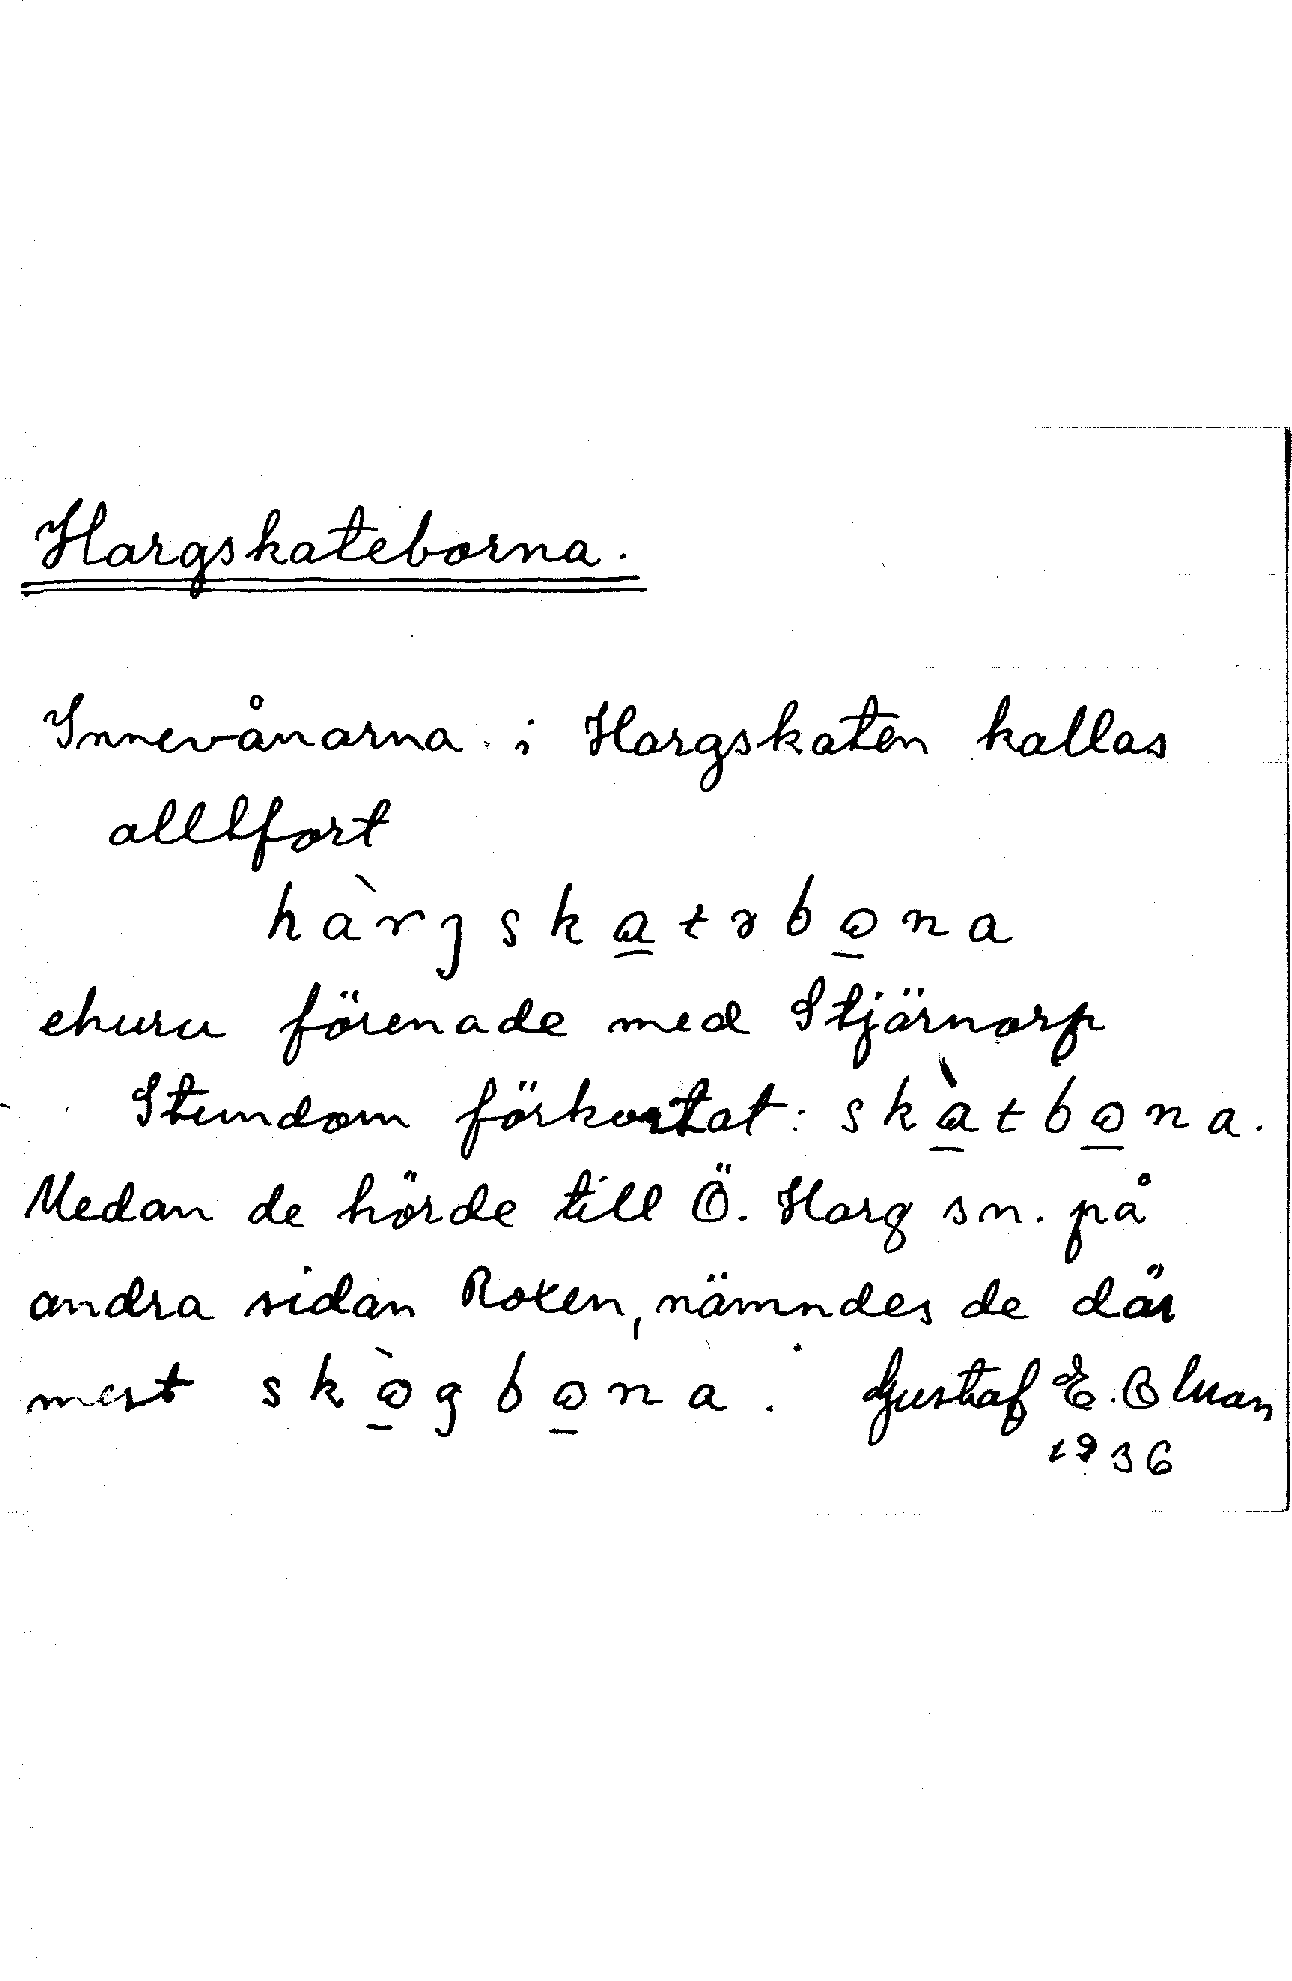 Hargskateborna.
Innevånarna i Hargskaten kallas
alltfort
hàrjska̲təbo̲na
ehuru förenade med Stjärnorp
Stundom förkortat: skà̲tbo̲na.
Medan de hörde till Ö. Harg sn. på
andra sidan Roxen, nämndes de där
mest skò̲gbo̲na. Gustaf E.
1936